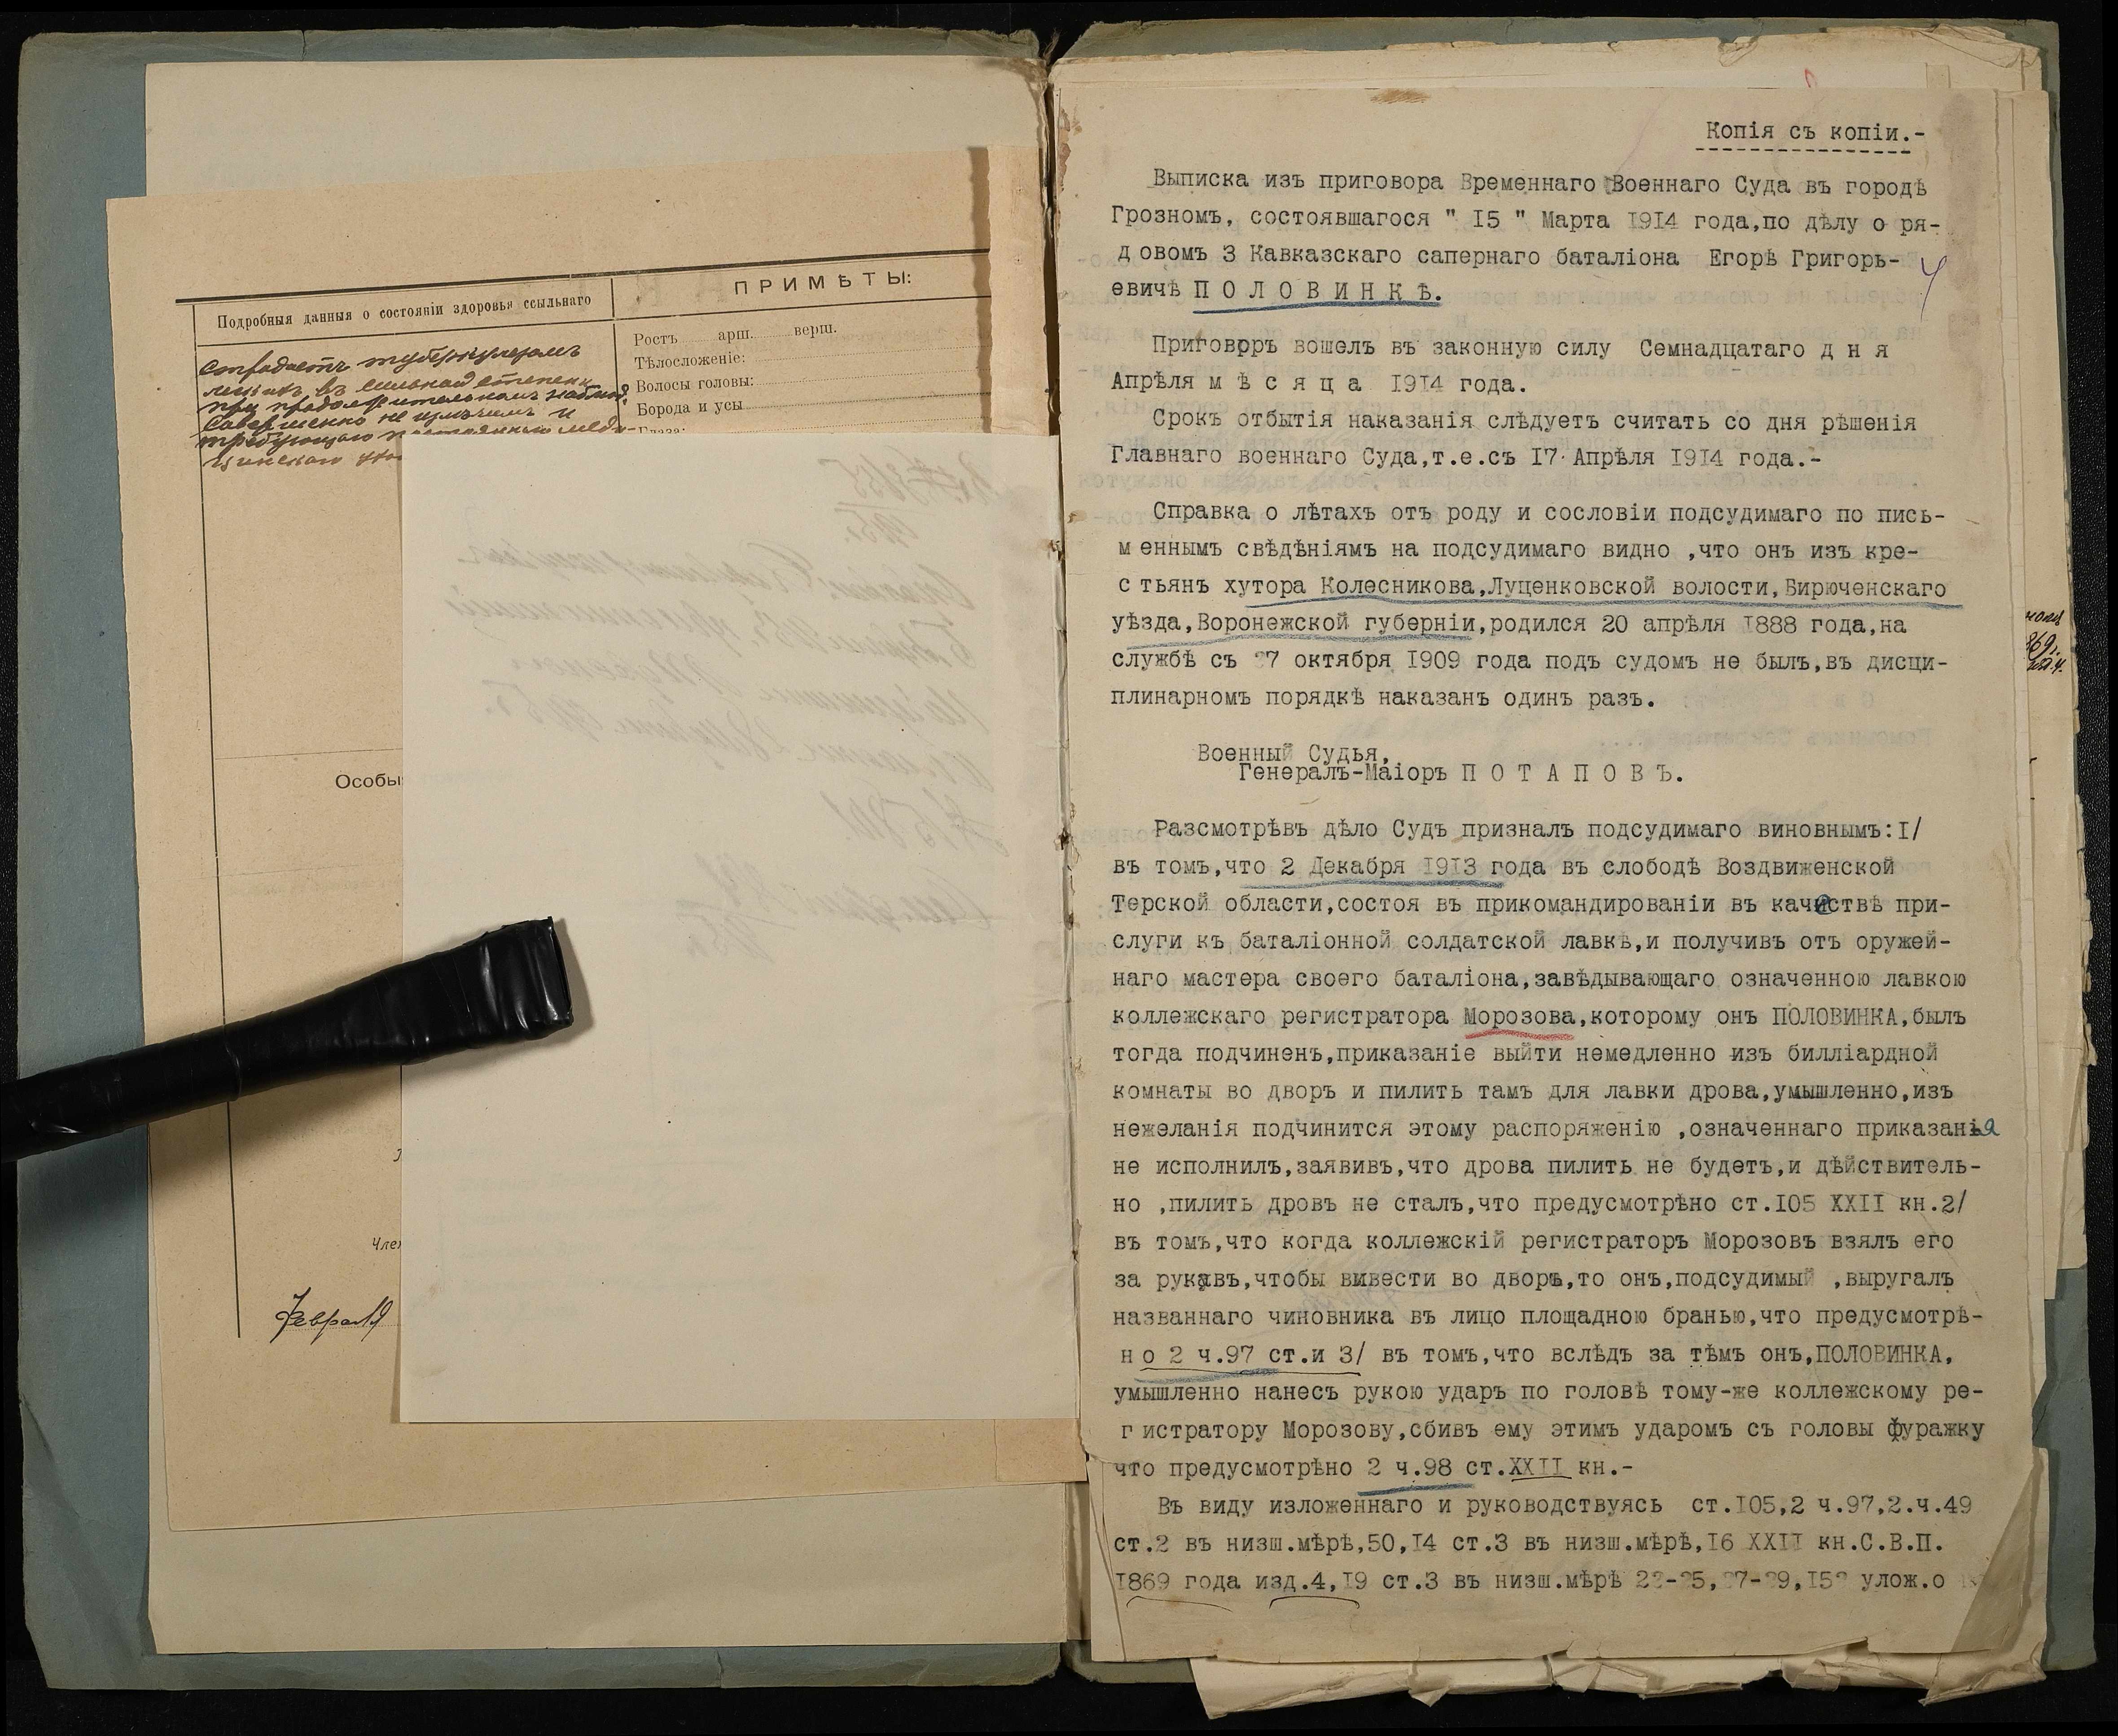 Подробныя данныя о состояніи здоровья ссыльнаго
ПРИМѢТЫ:
Ростъ арш. верш.
Тѣлосложеніе:
Волосы головы:
Борода и усы
Глаза:
Страдаетъ туберкулезомъ
легкихъ въ сильной степени
при продолжительномъ
совершенно не излѣчимъ и
требующаго
Особы
Член
Февраля
Копія съ копіи.-
Выписка изъ приговора Временнаго Военнаго Суда въ городѣ
Грозномъ, состоявшагося " I5 " Марта I9I4 года,по дѣлу о ря-
довомъ 3 Кавказскаго сапернаго баталіона Егорѣ Григорь-
евичѣ П О Л О В И Н К Ѣ.
4
Приговоръ вошелъ въ законную силу Семнадцатаго д н я
Апрѣля м ѣ с я ц а I9I4 года.
Срокъ отбытія наказанія слѣдуетъ считать со дня рѣшенія
Главнаго военнаго Суда,т.е.съ I7 Апрѣля I9I4 года.-
Справка о лѣтахъ отъ роду и сословіи подсудимаго по пись-
меннымъ свѣдѣніямъ на подсудимаго видно ,что онъ изъ кре-
стьянъ хутора Колесникова,Луценковской волости,Бирюченскаго
уѣзда,Воронежской губерніи,родился 20 апрѣля I888 года,на
службѣ съ 27 октября I909 года подъ судомъ не былъ,въ дисци-
плинарномъ порядкѣ наказанъ одинъ разъ.
Военный Судья,
Генералъ-Маіоръ П О Т А П О В Ъ.
Разсмотрѣвъ дѣло Судъ призналъ подсудимаго виновнымъ:I/
въ томъ,что 2 Декабря I9I3 года въ слободѣ Воздвиженской
Терской области,состоя въ прикомандированіи въ качествѣ при-
слуги къ баталіонной солдатской лавкѣ,и получивъ отъ оружей-
наго мастера своего баталіона,завѣдывающаго означенною лавкою
коллежскаго регистратора Морозова,которому онъ ПОЛОВИНКА,былъ
тогда подчиненъ,приказаніе выйти немедленно изъ билліардной
комнаты во дворъ и пилить тамъ для лавки дрова,умышленно,изъ
нежеланія подчинится этому распоряженію ,означеннаго приказанія
не исполнилъ,заявивъ,что дрова пилить не будетъ,и дѣйствитель-
но ,пилить дровъ не сталъ,что предусмотрѣно ст.I05 XXII кн.2/
въ томъ,что когда коллежскій регистраторъ Морозовъ взялъ его
за рукавъ,чтобы вивести во дворъ,то онъ,подсудимый ,выругалъ
названнаго чиновника въ лицо площадною бранью,что предусмотрѣ-
но 2 ч.97 ст.и 3/ въ томъ,что вслѣдъ за тѣмъ онъ,ПОЛОВИНКА,
умышленно нанесъ рукою ударъ по головѣ тому-же коллежскому ре-
гистратору Морозову,сбивъ ему этимъ ударомъ съ головы фуражку
что предусмотрѣно 2 ч.98 ст.XXII кн.-
Въ виду изложеннаго и руководствуясь ст.I05,2 ч.97,2.ч.49
ст.2 въ низш.мѣрѣ,50,I4 ст.3 въ низш.мѣрѣ,I6 XXII кн.С.В.П.
I869 года изд.4,I9 ст.3 въ низш.мѣрѣ улож.о